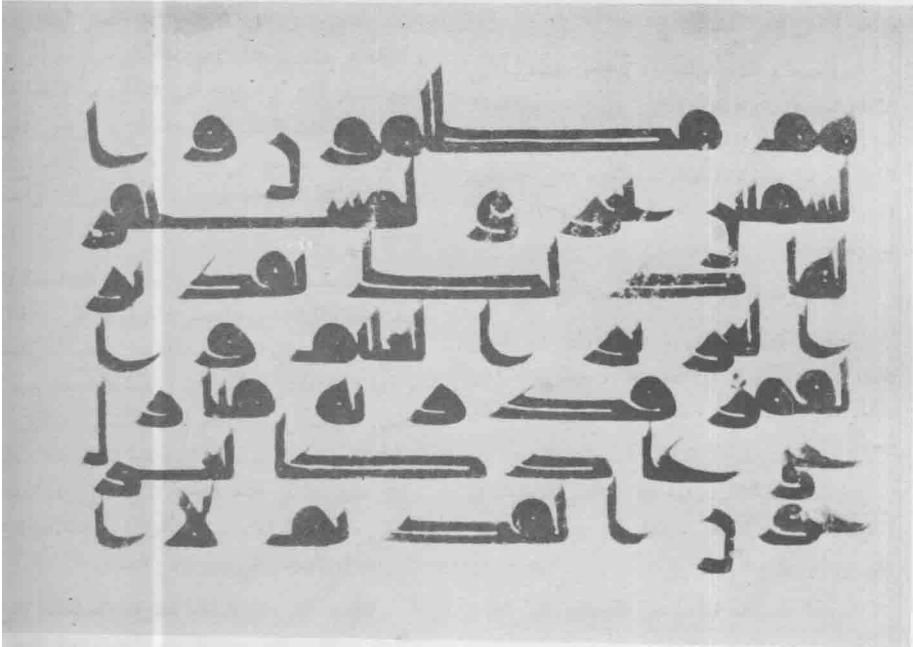 هم مظلمون و ا
لشمس تجري لمستقر
لها ذلك تقدير
العزيز العليم و ا
لقمر قدرنه منازل
حتى عاد كالعر
جون القديم لا ا